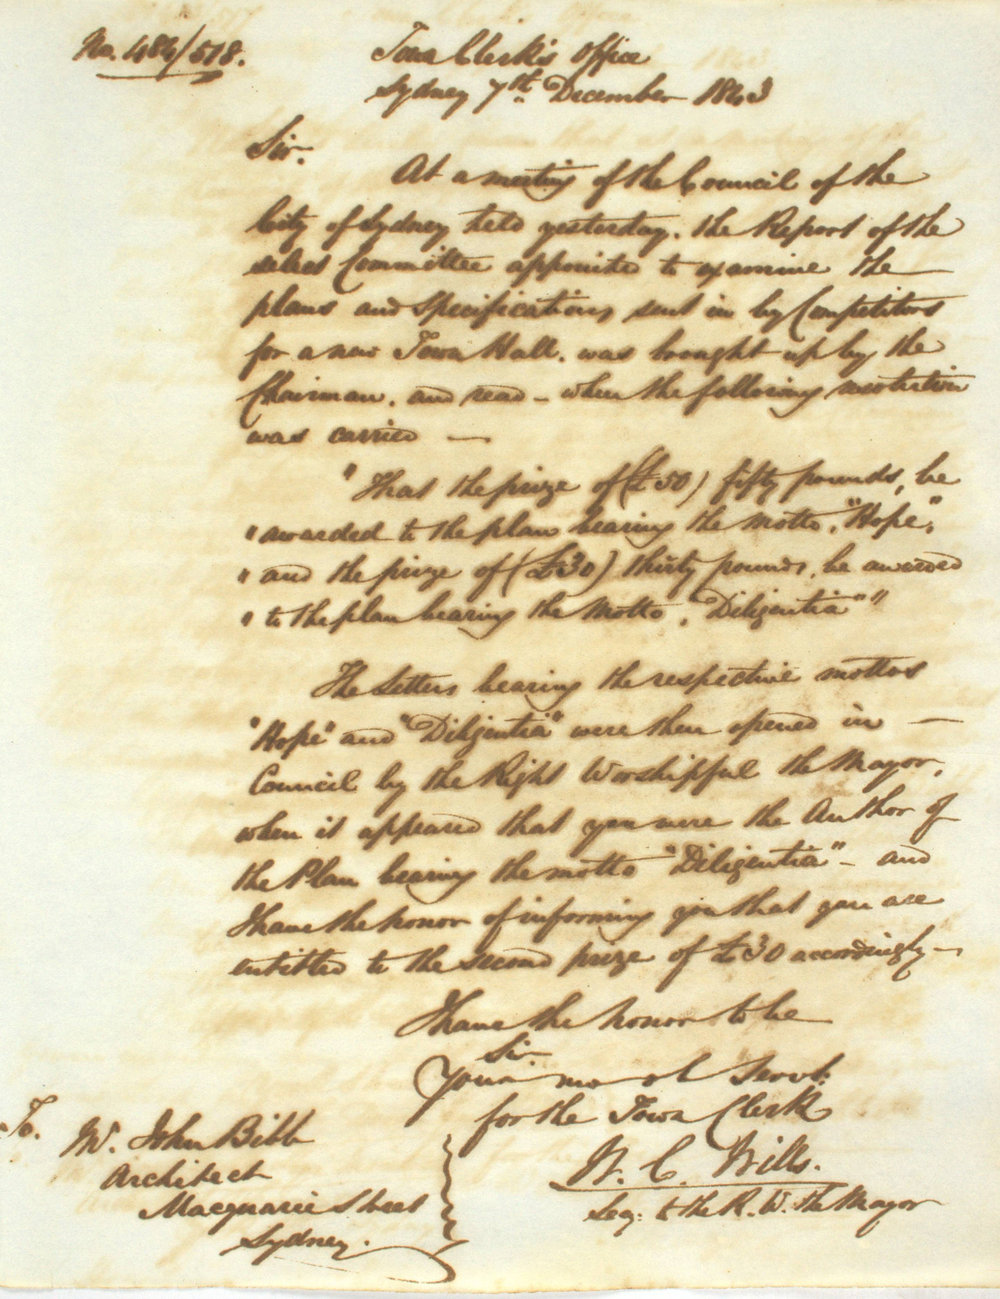 No. 486/518.
Town Clerk's Office
Sydney 7th December 1843
Sir.
At a meeting of the Council of the
City of Sydney held yesterday. the Report of the
select Committee appointed to examine the
plans and specifications sent in by Competitors
for a new Town Hall. was brought up by the
Chairman. and read - when the following
was carried —
"That the prize of (£50) fifty pounds, be
" awarded to the plan bearing the motto, "Hope",
" and the prize of (£30) thirty pounds. be awarded
" to the plan bearing the Motto, "Diligentia""
The Letters bearing the respective mottos
"Hope" and "Diligentia" were then opened in —
Council by the Right Worshipful the Mayor,
when it appeared that you were the Author of
the Plan bearing the motto "Diligentia" - and
I have the honor of informing you that you are
entitled to the second prize of £30 accordingly —
I have the honor to be
Sir.
Your mo ob Servt.
for the Town Clerk
W. C. Wills.
Secy. to the R. W. the Mayor
To.
Mr. John Bibb
Architect
Macquarie Street
Sydney.